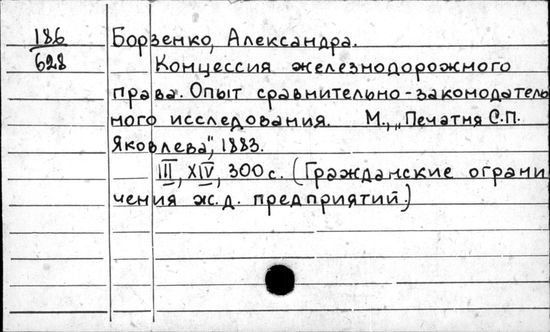 186
628
Борзенко, Александра.
Концессия железнодорожного
права. Опыт сравнительно-законодатель
ного исследования. М., „Печатня С.П.
Яковлева", 1883.
III, XIV, 300 с. (Гражданские ограни
чения ж.д. предприятий.)